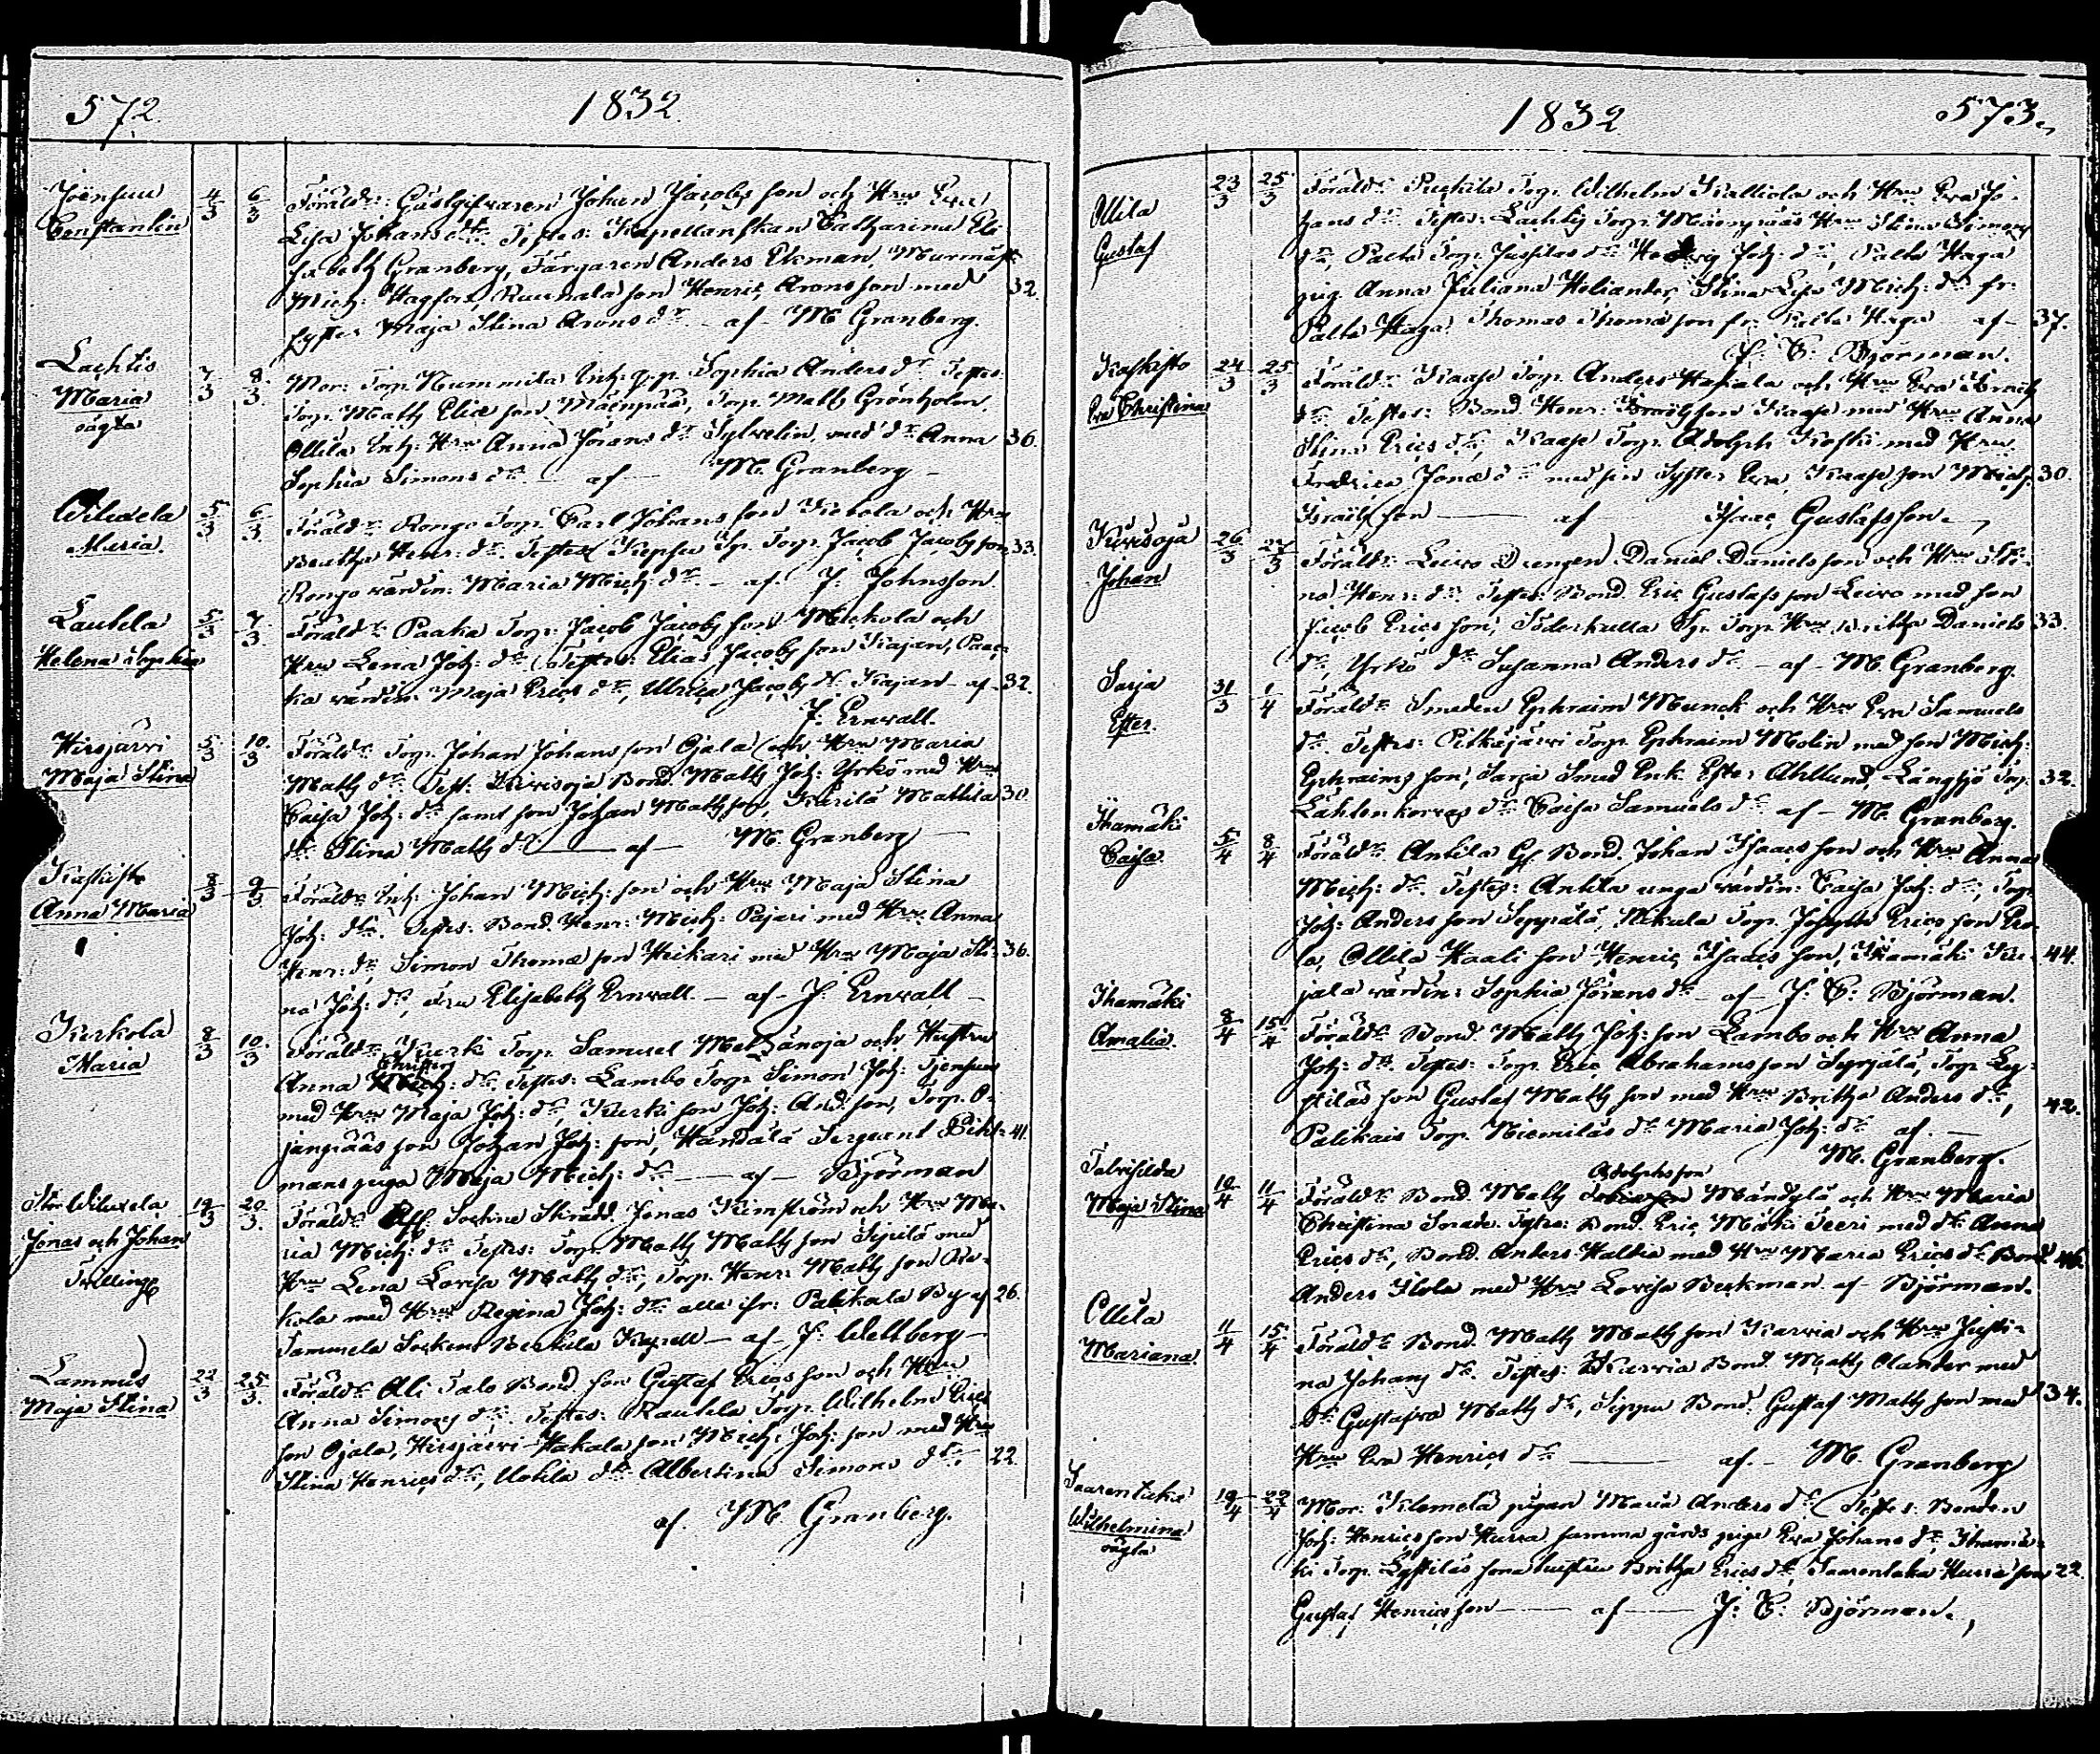 572.
1832.
Joensuu
Constantin
4/3
6/3
Föräldr: Gästgifvaren Johan Jacobs son och Hru Eva
Lisa Johans dr. Testes: Kapellanskan Catharina Eli
sabeth Granberg, Färgaren Anders Ekman, Murmäst:
Mich: Hagfors, son Henric Arons son med
32.
syster Maja Stina Arons dr. af M. Granberg.
Lachtis
Maria
oägta
7/3
8/3
Mor: Torp. Nummila Sophia Anders dr Testes:
Torp. Matts Elice son Mäenpää, Torp. Matts Grönholm,
Ollila Inh: Hru Anna Jörans dr Sylvelin, med dr Anna
36.
Sophia Simons dr. af M. Granberg
Wiluxela
Maria.
5/3
6/3
Föräldr: Rongo Torp. Carl Johans son och Hru
Beatha Henr: dr. Testes: Torp. Jacob Jacobs son
33.
Rongo värdin: Maria Mich: dr af J. Johnsson.
Lautela
Helena Sophia
5/3
7/3
Föräldr: Paaka Torp. Jacob Jacobs son och
Hru Lena Joh: dr. Testes: Elias Jacobs son Kajan, Paa-
ka värdin: Maja Erics dr, Ulrica Jacobs dr Kajan af
32.
J: Ervall.
Hirsjärvi
Maja Stina
5/3
10/3
Föräldr: Torp. Johan Johans son Ojala och Hru Maria
Matts dr Test: Kivisoja Bond. Matts Joh: Yrkö med Hru
Caisa Joh: dr samt son Johan Matts son, Mattila
30.
dr Stina Matts dr. af M. Granberg
Kaskisto
Anna Maria
8/3
9/3
Föräldr: Inh: Johan Mich: son och Hru Maja Stina
Joh: dr. Testes: Bond. Henr: Mich: Pajari med Hru Anna
Henr: dr, Simon Thomæ son Heikari med Hru Maja Sti-
36.
na Joh: dr, Fru Elisabeth Ervall. af J. Ervall
Kerkola
Maria
8/3
10/3
Föräldr: Kurki Torp. Samuel Metsänoja och Hustru
Christina
Anna dr. Testes: Lambo Torp. Simon Joh:
med Hru Maja Joh: dr, Kurki son Joh: And: son, Torp. O-
janpääs son Johan Joh: son, Händälä Sergeant
41.
mans piga Maja Mich: dr af Björman
Stor Wiluxela
Jonas och Johan
Tvilling
19/3
20/3
Föräldr: Aff. Sockne Skrädd. Jonas och Hru Ma-
ria Mich: dr Testes: Torp. Matts Matts son med
Hru Lena Lovisa Matts dr, Torp. Henr: Matts son
kola med Hru Regina Joh: dr alla ifr: Palikala By af
26.
Tammela Socken Kapell af J: Wellberg
Lammi
Maja Stina
22/3
25/3.
Föräldr: Ali Talo Bond. son Gustaf Erics son och Hru
Anna Simons dr. Testes: Rautela Torp. Wilhelm Erics
son Ojala, Hirsjärvi Hakala son Mich: Joh: son med Hru
Stina Henrics dr, Uotila dr Albertina Simons dr
22.
af. M. Granberg.
1832
573.
Ollila
Gustaf
23/3
25/3
Föräldr: Torp. Wilhelm Kalliola och Hru Eva Jo-
hans dr. Testes: Lachtis Torp. Mäenpääs Hru Stina Simons
dr, Palta Torp. dr Hedvig Joh: dr, Palta Haga
pig. Anna Juliana Heliander, Stina Lisa Mich: dr fr:
Palta Haga Thomas Thomæ son fr: Palta Haga af
37.
J: E: Björman.
Kaskisto
Eva Christina
24/3
25/3
Föräldr: Kaase Torp. Anders Hakala och Hru Eva Israels
dr. Testes: Bond. Henr: Israels son Kaase med Hru Anna
Stina Erics dr, Kaase Torp. Adolph Koski med Hru
Fredrica Jonæ dr med sin Syster Eva, Kaase son Mich:
30.
Israels son af Isaac Gustafsson.
Kivisoja
Johan
26/3
27/3
Föräldr: Leivo Drengen Daniel Daniels son och Hru Sti-
na Henr: dr. Testes: Bond. Eric Gustafs son Leivo med son
Jacob Erics son, Söderkulla Torp. Hru Britha Daniels
33.
dr, Yrkö dr Susanna Anders dr af M. Granberg.
Sarja
Ester.
31/3
1/4
Föräldr: Smeden Ephraim Munck och Hru Eva Samuels
dr. Testes: Pitkäjärvi Torp. Ephraim Molin med son Mich:
Ephraims son, Sarja Smed Enk. Ester Ahllund, Långsjö Torp.
32.
Lähtenkorvas dr Caisa Samuels dr af M. Granberg.
Ihamäki
Caisa
5/4
8/4
Föräldr: Anttila Bond. Johan Isaacs son och Hru Anna
Mich: dr. Testes: Anttila unga värdin: Caisa Joh: dr, Torp.
Joh: Anders son Seppälä, Nikula Torp. Joseph Erics son Ero-
la, Ollila Haali son Henric Isaacs son, Ihamäki Ku-
44.
jala värdin: Sophia Jörans dr af J: E: Björman.
Ihamäki
Amalia.
8/4
15/4
Föräldr: Bond. Matts Joh: son Lambo och Hru Anna
Joh: dr. Testes: Torp. Eric Abrahams son Syrjälä, Torp. Lep-
stiläs son Gustaf Matts son med Hru Britha Anders dr,
42.
Palikais Torp. Niemiläs dr Maria Joh: dr af.
M. Granberg.
Talvisilda
Maja Stina
10/4
11/4
Adolphs son
Föräldr: Bond. Matts Mändylä och Hru Maria
Christina Testes: Bond. Eric Mäki Teeri med dr Anna
Erics dr, Bond. Anders Haltia med Hru Maria Erics dr Bond.
46.
Anders Ilola med Hru Lovisa Berkman af Björman.
Ollila
Mariana.
11/4
15/4
Föräldr: Bond. Matts Matts son Karvia och Hru Justi-
na Johans dr. Testes: Karvia Bond. Matts Olander med
dr Gustafva Matts dr, Seppu Bond. Gustaf Matts son med
34.
Hru Eva Henrics dr af. M. Granberg
Saarentaka
Wilhelmina
oägta
19/4
22/4
Mor: Klemelä pigan Maria Anders dr Testes: Bonden
Joh: Henrics son Hurra samma gårds piga Eva Johans dr, Ihamä-
ki Torp. Lepstiläs sona hustru Britha Erics dr, Saarentaka Hurra son
22.
Gustaf Henrics son af J: E: Björman.